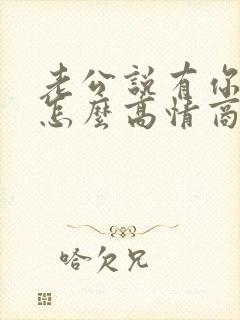 老公說有你
怎麼高情商
哈欠兄